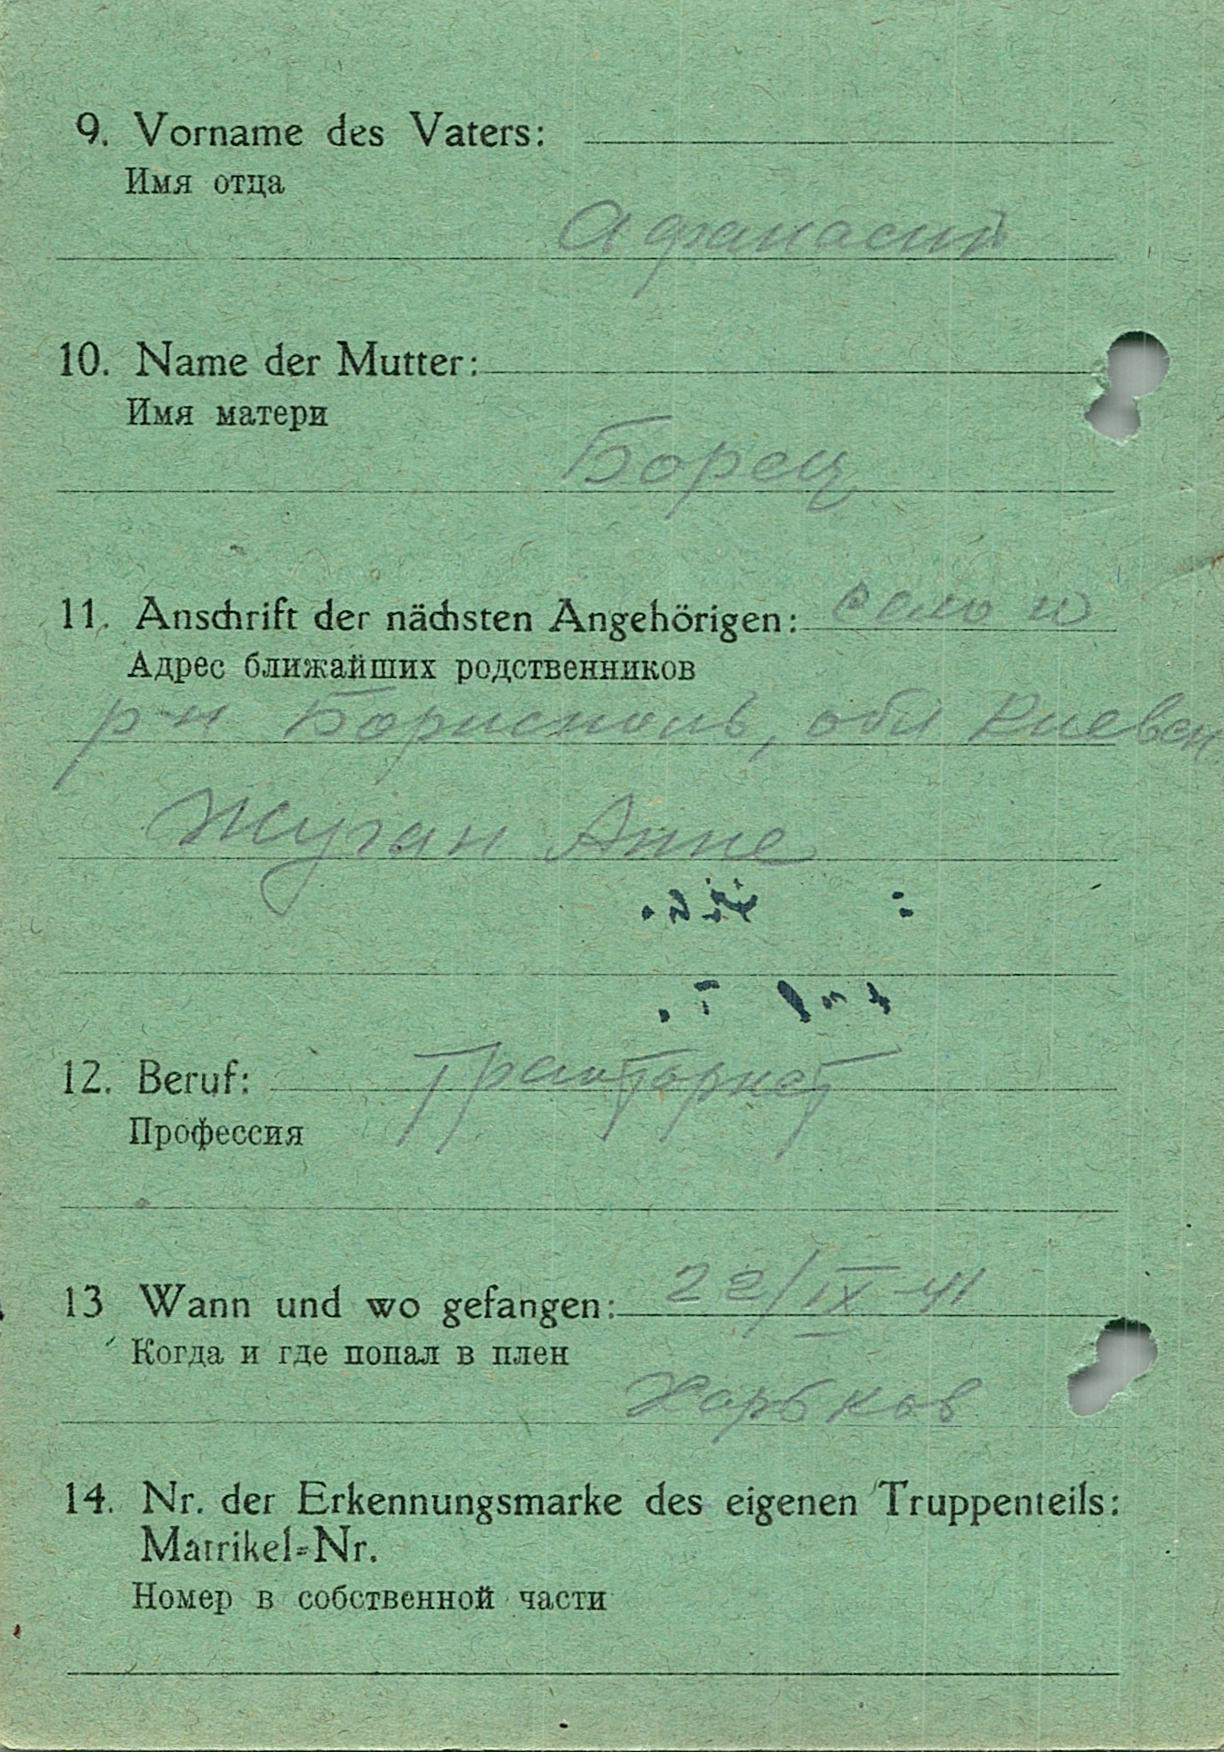 9. Vorname des Vaters:
Имя отца
Афанасий
10. Name der Mutter:
Имя матери
Борец
11. Anschrift der nächsten Angehörigen: село и
Адрес ближайших родственников
р-н Борисполь, обл Киевск
Жуган Анне
12. Beruf: Тракторист
Профессия
13 Wann und wo gefangen: 22/IX-41
Когда и где попал в плен
Харьков
14. Nr. der Erkennungsmarke des eigenen Truppenteils:
Matrikel-Nr.
Номер в собственной части